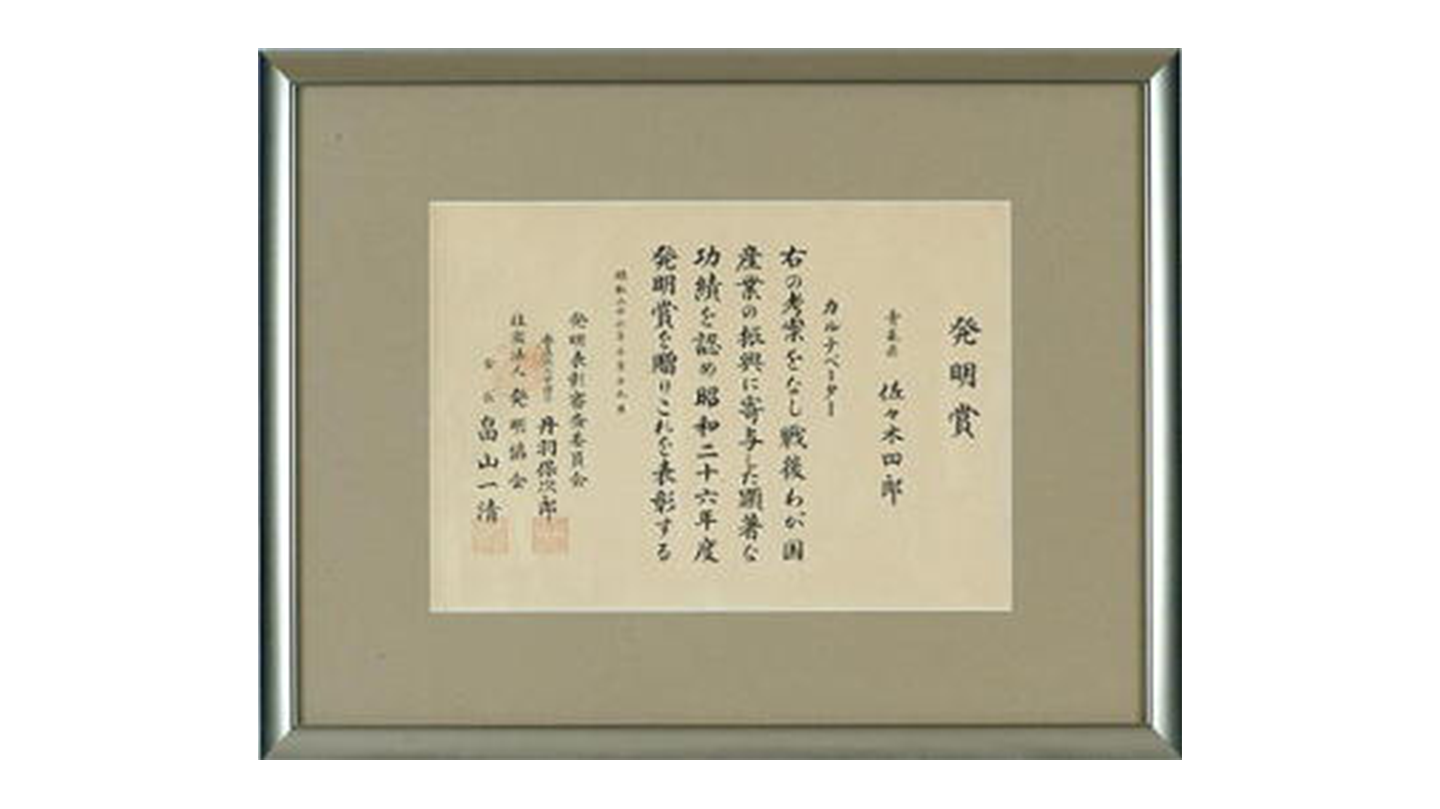 発明賞
青森県 佐々木四郎
カルチベーター
右の考案をなし戦後わが国
産業の振興に寄与した顕著な
功績を認め昭和二十六年度
発明賞を贈りこれを表彰する
昭和二十六年
発明表彰審査委員会
丹羽保次郎
社団法人 発明協会
会長 畠山一清